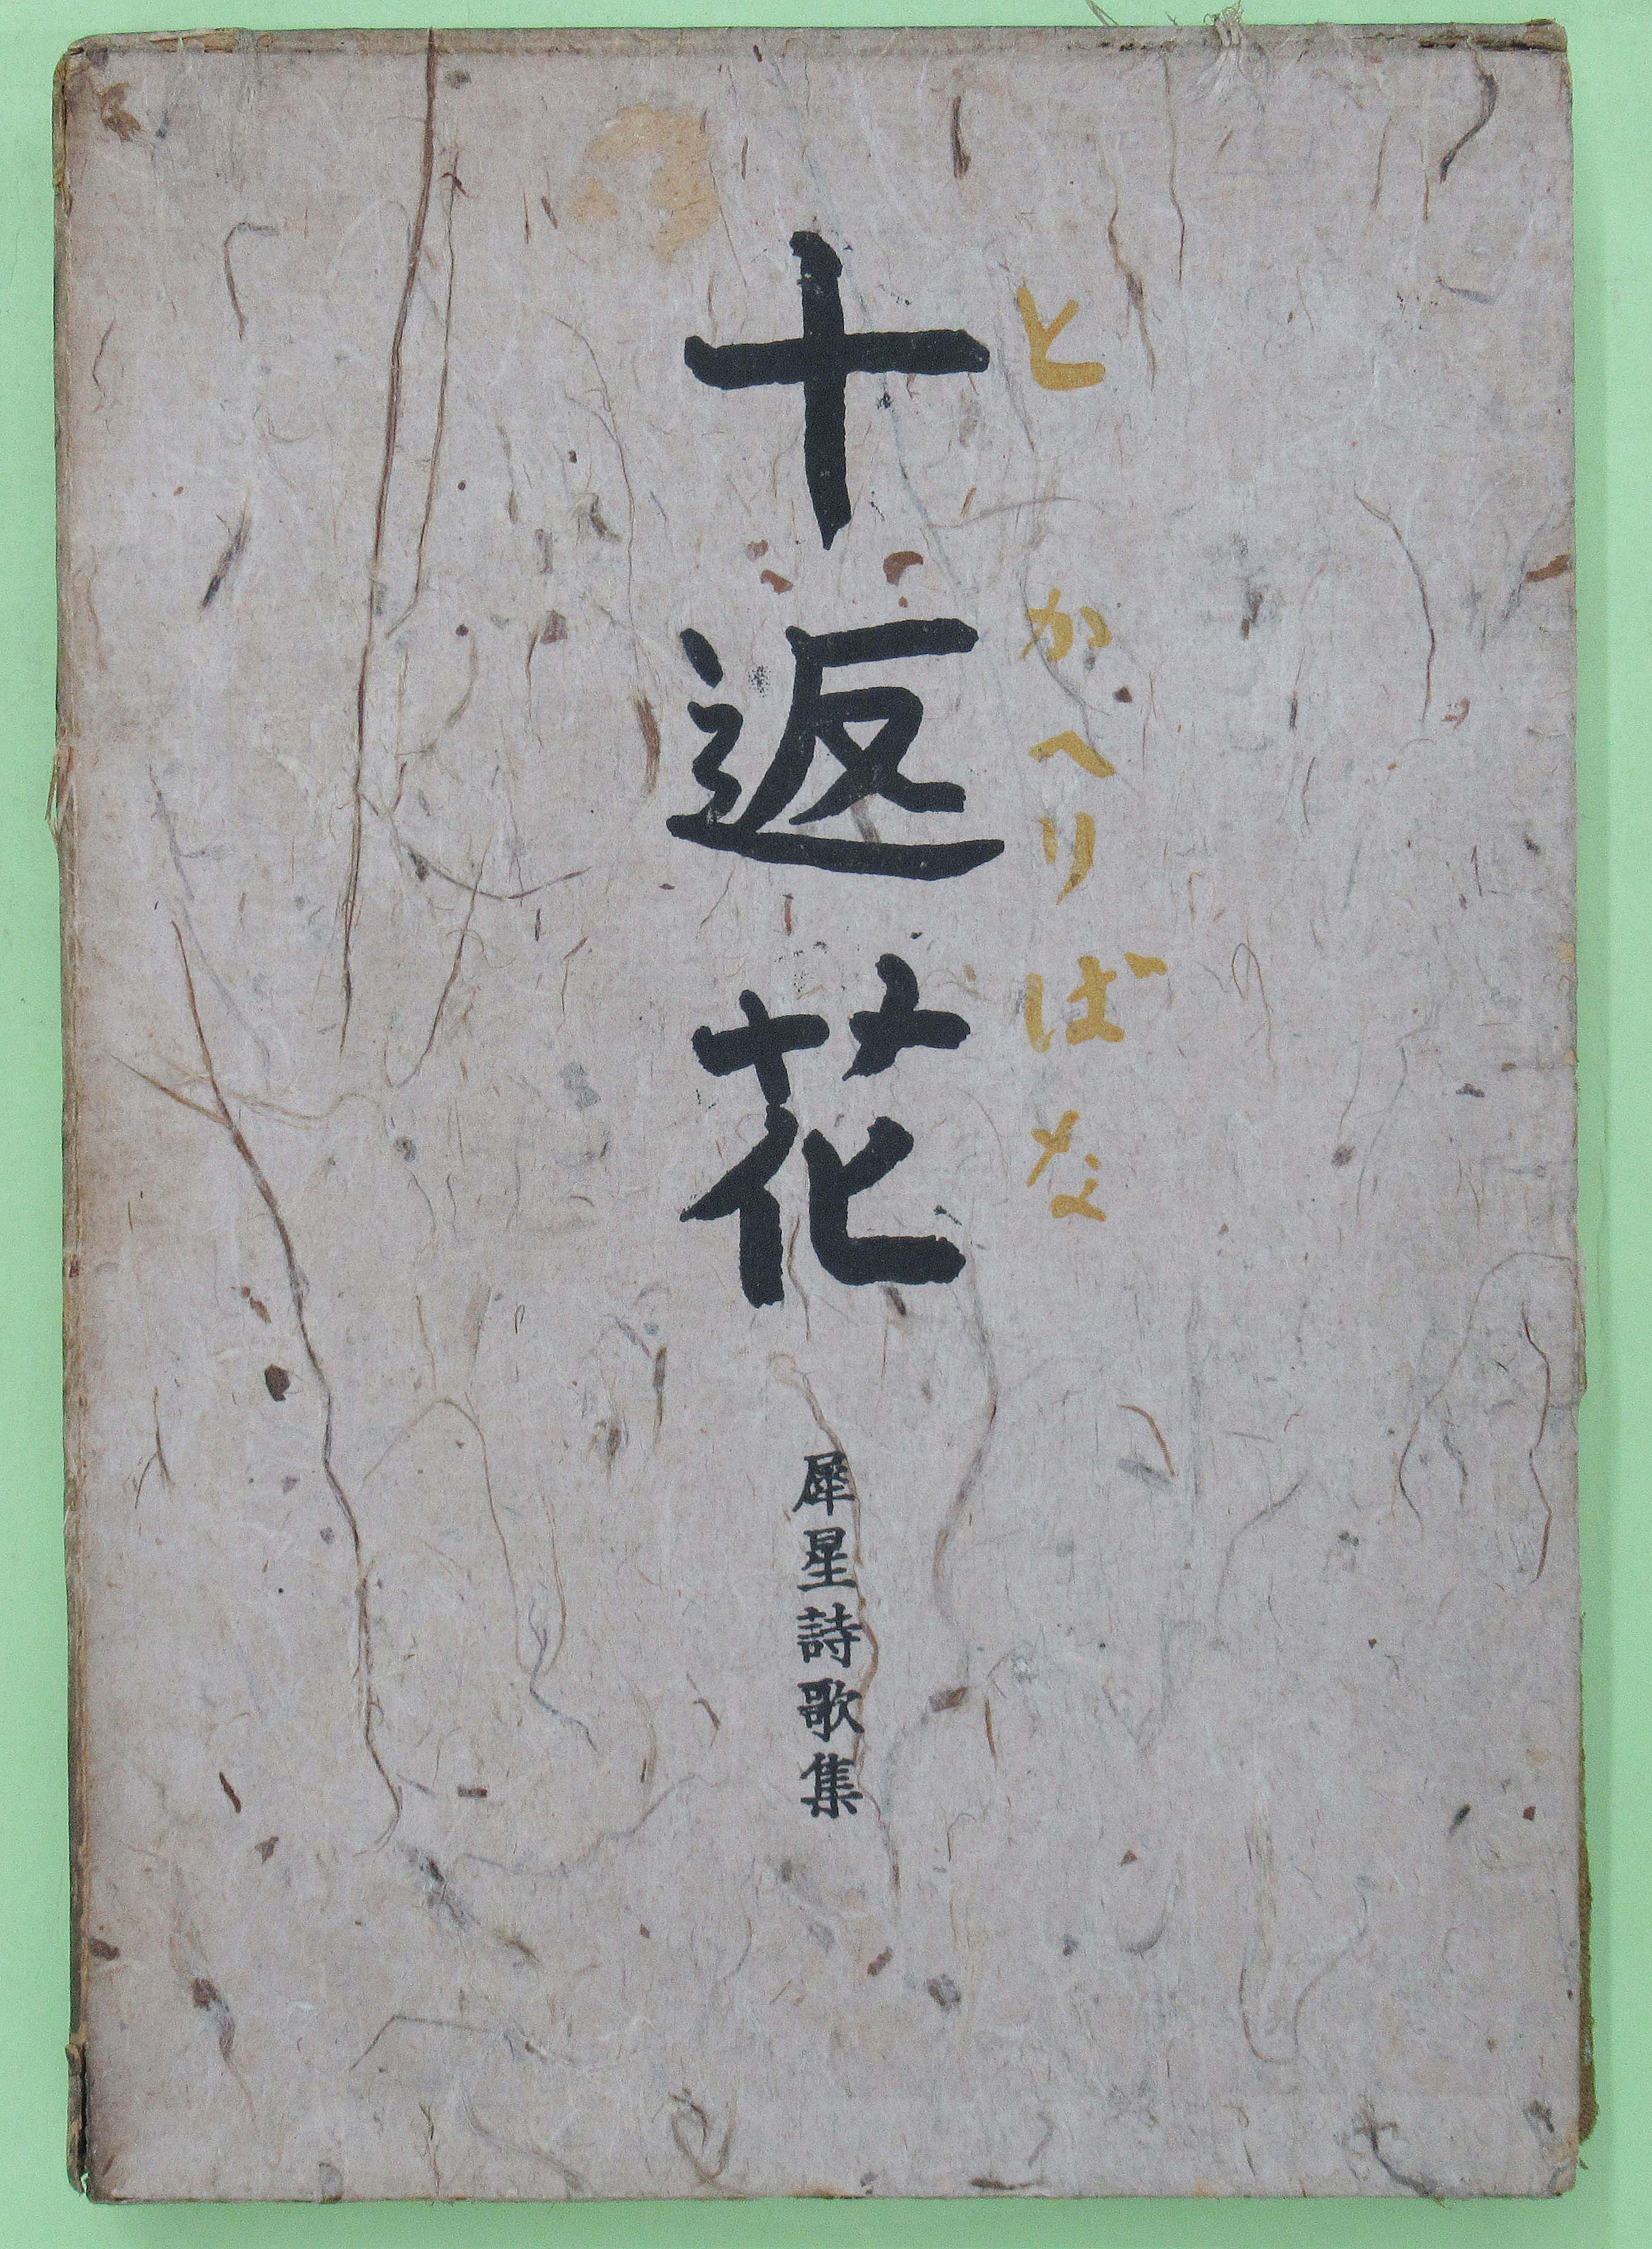 とかへりばな
十返花
犀星詩歌集